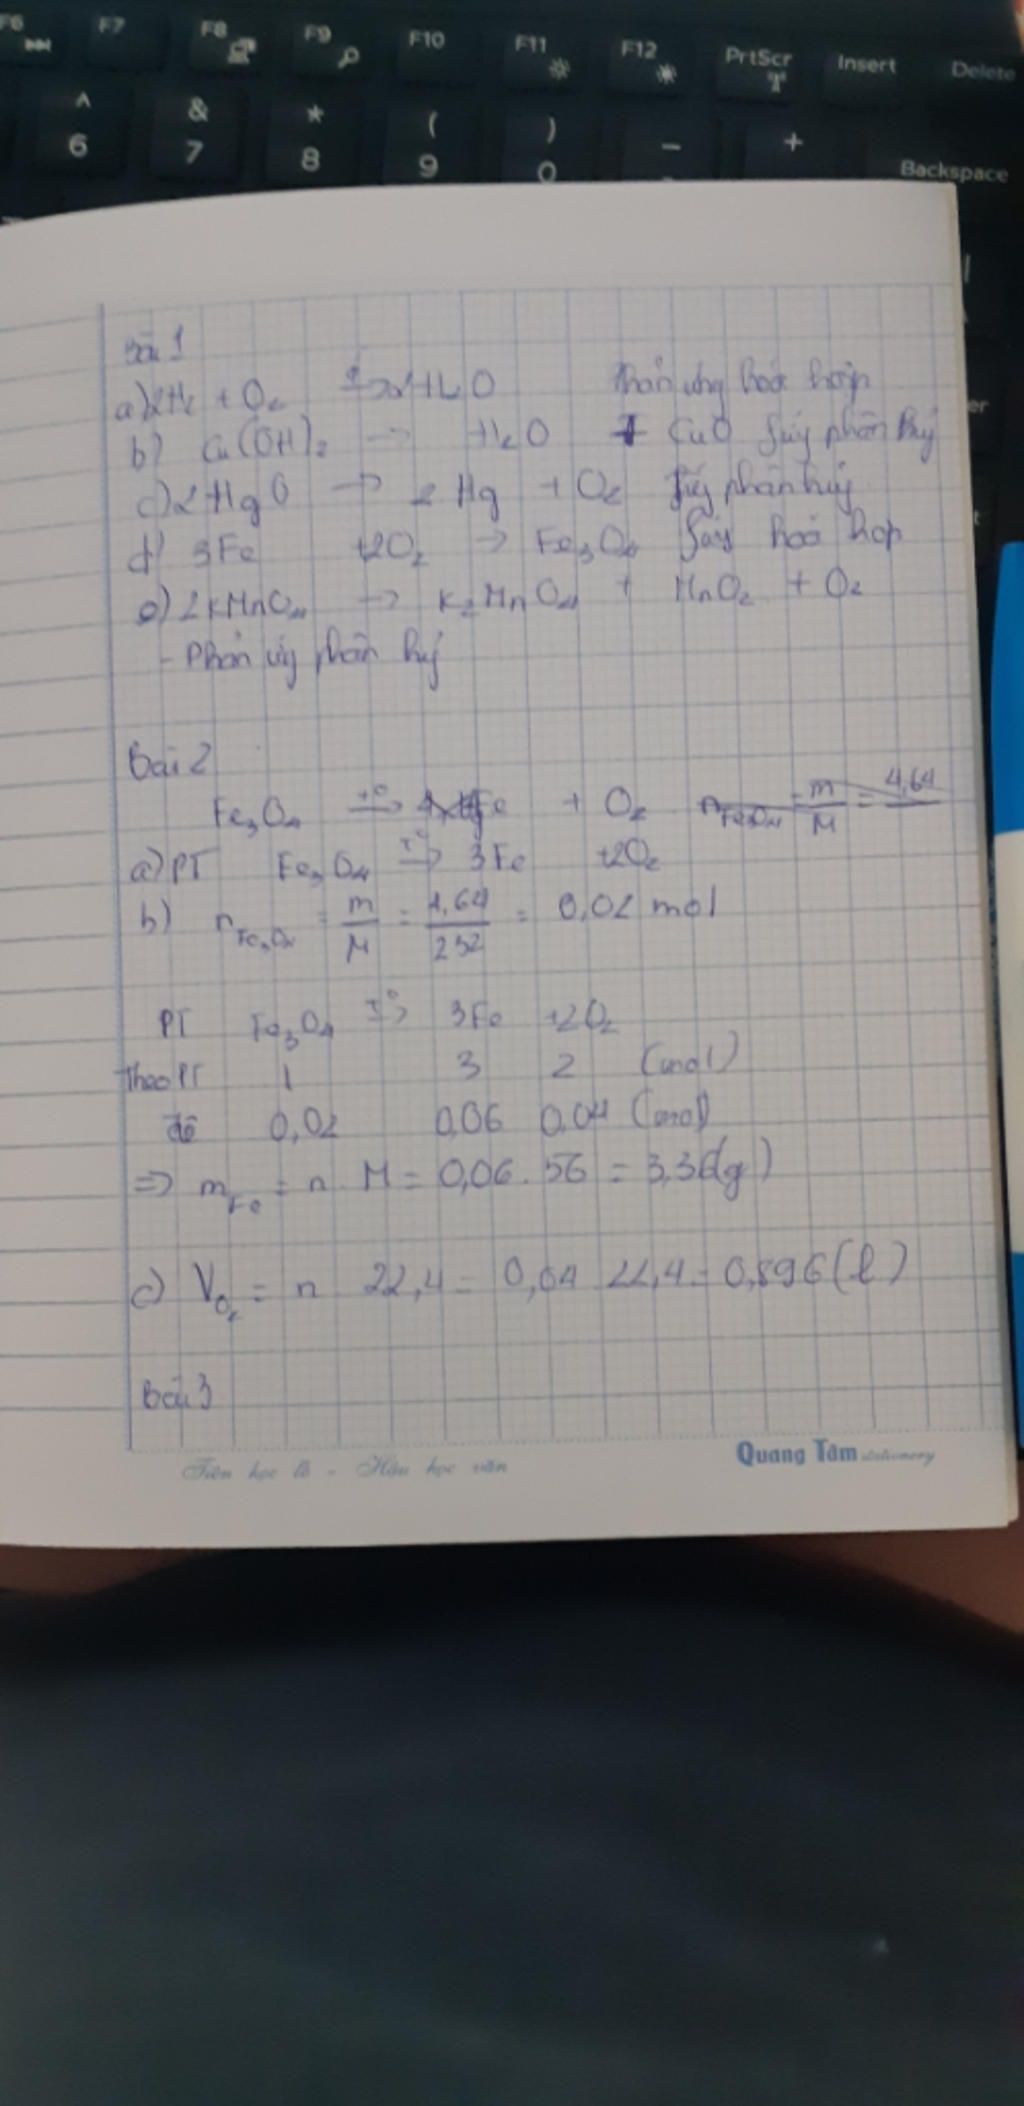 F6 F7 F8 F9 F10 F11 F12 PrtScr Insert Delete
^ & * ( ) _ +
6 7 8 9 0 Backspace
Bài 1
a) 2H2 + O2 t° → 2H2O Phản ứng hoá hợp
b) Cu(OH)2 → H2O + CuO phân huỷ
c) 2HgO → 2Hg + O2 phân huỷ
d) 3Fe + 2O2 → Fe3O4 hoá hợp
e) 2KMnO4 → K2MnO4 + MnO2 + O2
- Phản ứng phân huỷ
Bài 2
Fe3O4 t° → Fe + O2 nFe3O4 = m/M = 4,64
a) PT Fe3O4 T° → 3Fe +2O2
b) nFe3O4 = m/M = 4,64/232 = 0,02 mol
PT Fe3O4 T° → 3Fe +2O2
Theo PT 1 3 2 (mol)
đề 0,02 0,06 0,04 (mol)
=> mFe = n . M = 0,06 . 56 = 3,36(g)
c) VO2 = n 22,4 = 0,04 22,4 = 0,896 (l)
Bài 3
Tiên học lễ - Hậu học văn
Quang Tâm stationery